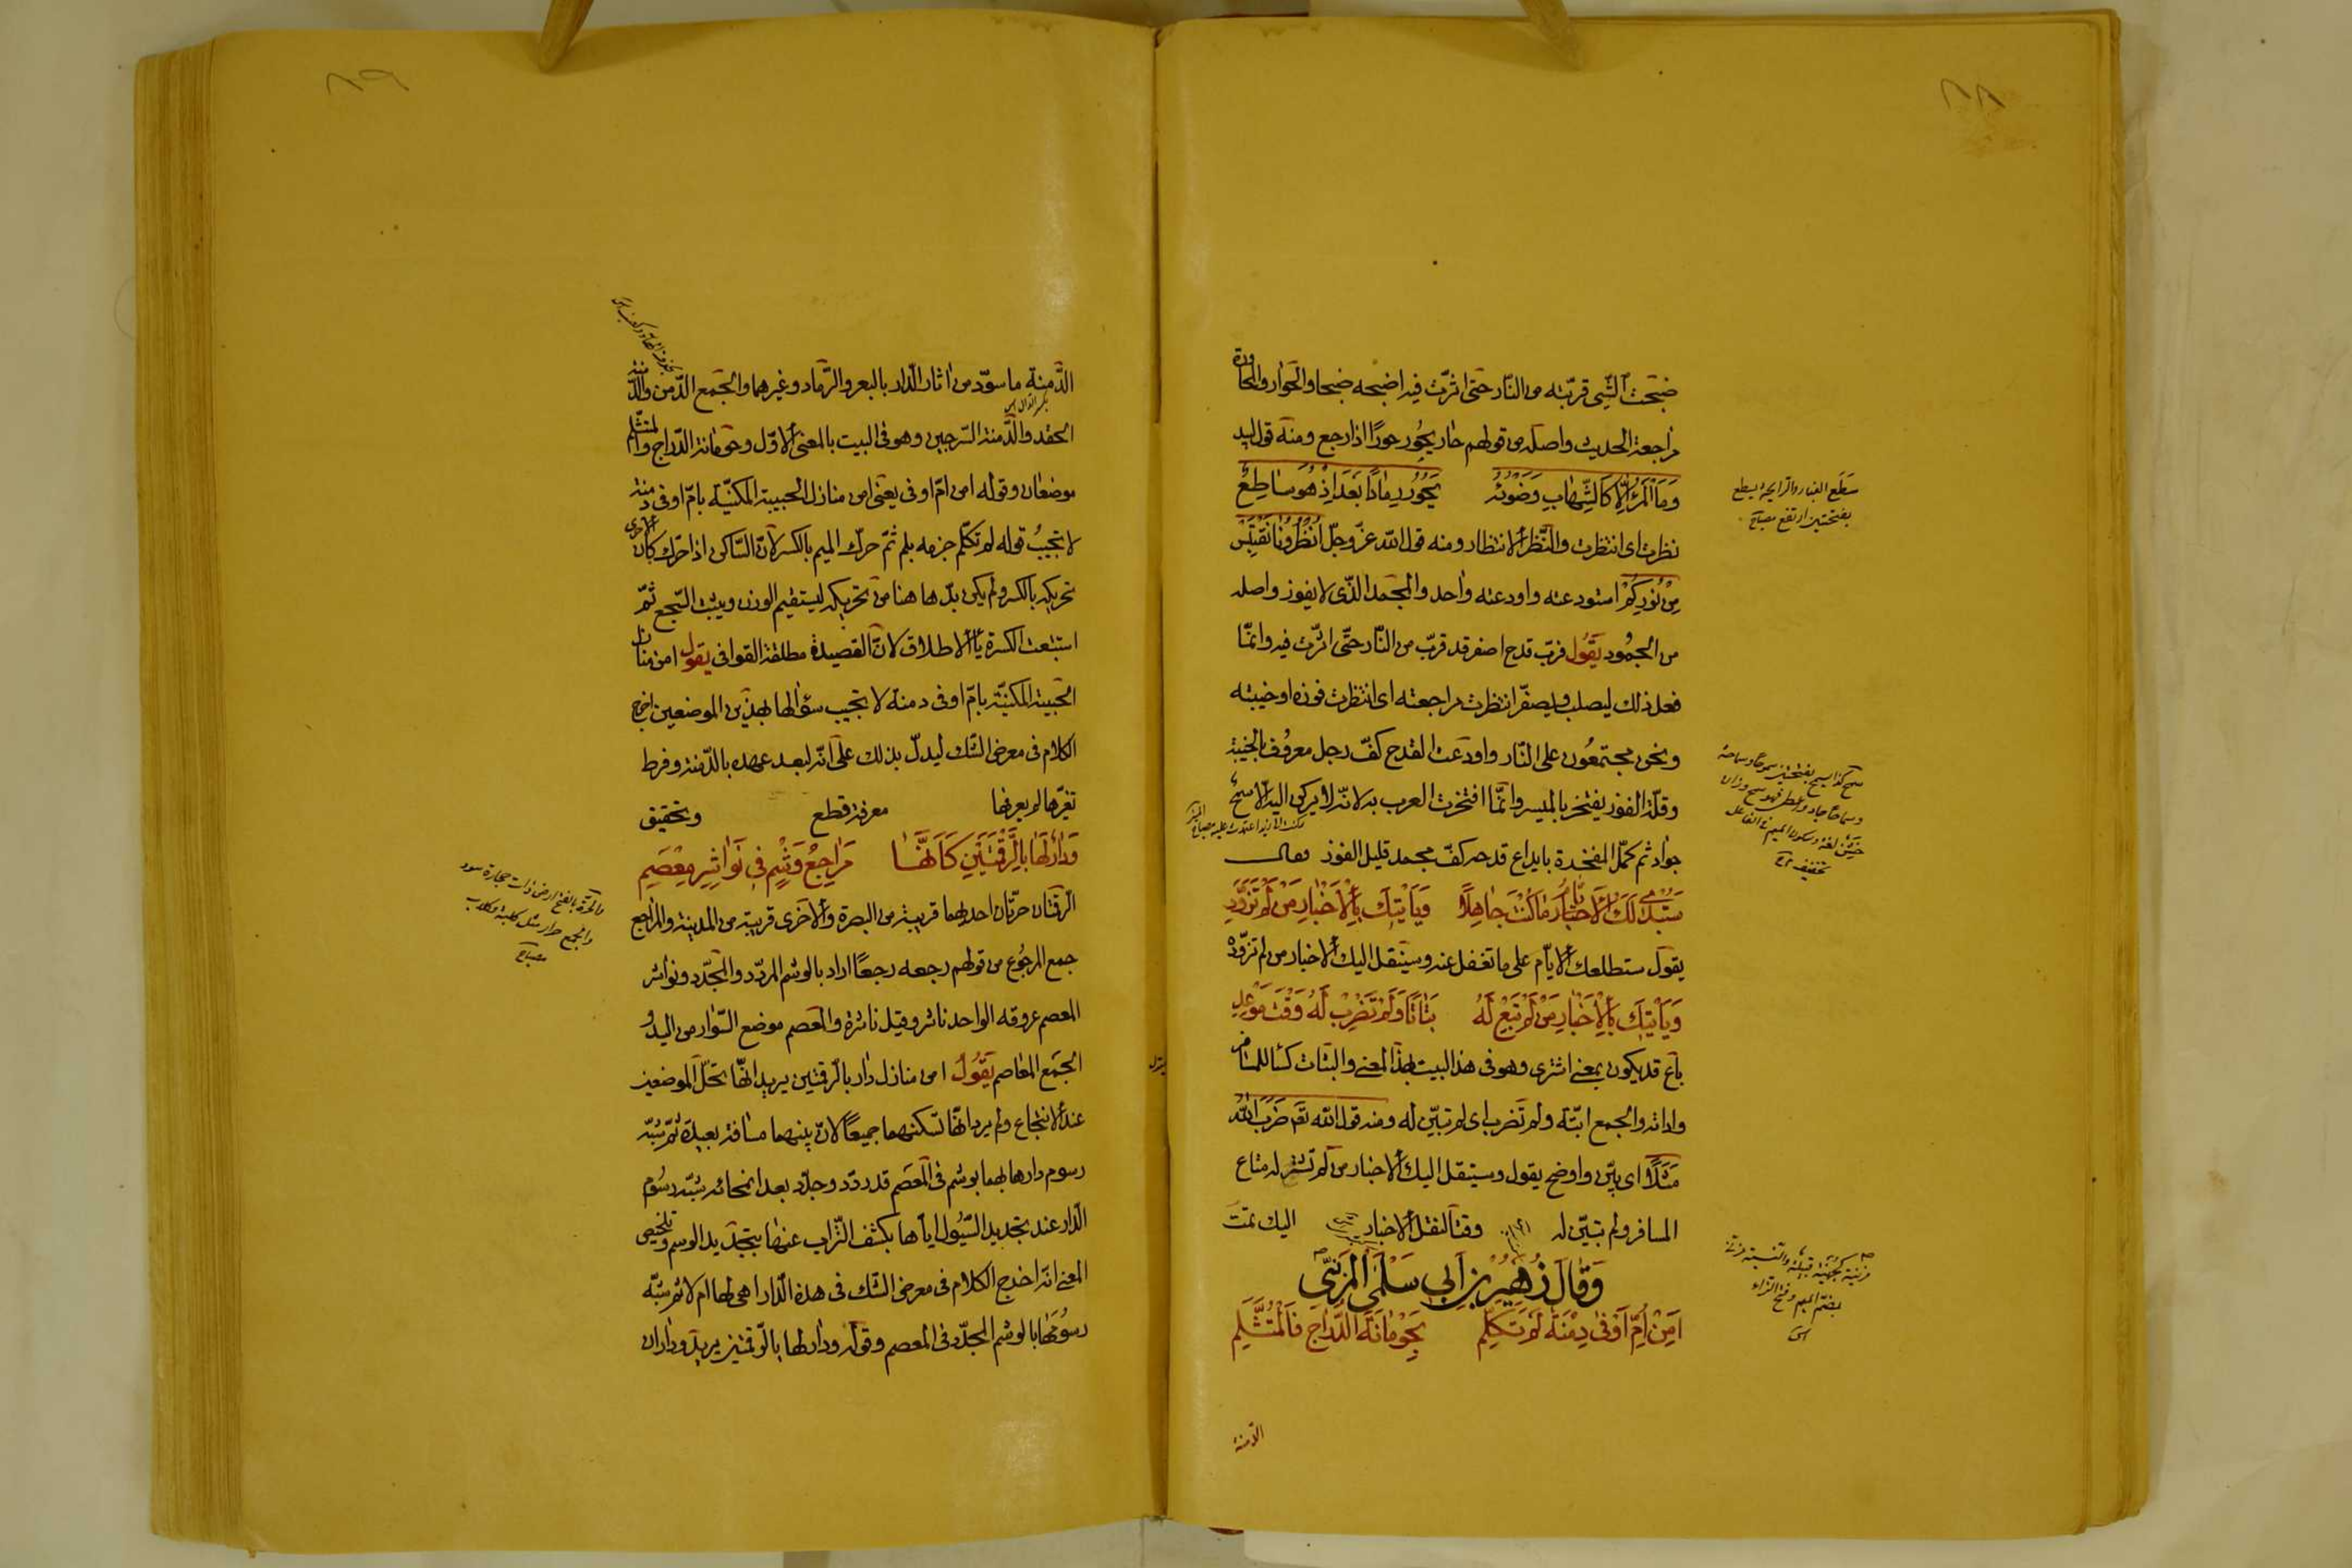 ضبحت الشّيء قرّبته من النّار حتى اثرّت فيه اضبحه ضبحا والحوار والمحاورة
مراجعة الحديث واصله من قولهم حار يحُور حورًا اذا رجع ومنه قول لبيد
وَمَا المَرْءُ اِلّا كَالشِّهابِ وَضَوْئِهِ يَحُورُ رِمادًا بَعْدَ اِذْ هُوَ سَاطِعُ
نظرت اى انتظرت والنّظر الانتظار ومنه قول اللّه عزّ وجلّ اُنْظُرُونا نَقْتَبِسْ
مِن نُورِكُمْ استودعته واودعته واحد والمجمد الذّى لا يفوز واصله
من الجمُود يَقُول فربّ قدح اصفر قد قرّب من النّار حتّى اثرّت فيه وانمّا
فعل ذلك ليصلب وليصفّر انتظرت مراجعته اى انتظرت فوزه او خيبته
ونحن مجتمعُون على النّار واودعت القدح كفّ رجل معرُوف بالخيبة
وقلّة الفوز يفتخر بالميسر وانمّا افتخرت العرب به لانّه لا يركن اليه الّا سمح
جواد ثم كمّل المفخرة بايداع قدحه كفّ مجمد قليل الفوز وقال
سَتُبْدِى لَكَ الاَيّامُ مَا كُنْتَ جاهِلًا وَيَأْتِيكَ بِالْاَخْبارِ مَنْ لَمْ تُزَوِّدِ
يقول ستطلعك الايّام على ما تغفل عنه وسينقل اليك الاخبار من لم تزوّده
وَيَأْتِيكَ بِالْاَخْبارِ مَنْ لَمْ تَبِعْ لَهُ بَتَاتًا وَلَمْ تَضْرِبْ لَهُ وَقْتَ مَوْعِدِ
باع قد يكون بمعنى اشترى وهو فى هذا البيت بهذا المعنى والبتات كساء المسافر
واداته والجمع ابتّة ولم تضرب اى لم تبيّن له ومنه قول اللّه تعم ضَرَبَ اللّهُ
مَثَلًا اى بيّن واوضح يقول وسينقل اليك الاخبار من لم تشتر له متاع
المسافر ولم تبيّن له وقتًا لنقل الاخبار اليك تمّت
وَقالَ زُهَيْرُ بْنُ اَبى سَلْمَى المُزَنِىّ
اَمِنْ اُمِّ اَوْفى دِمْنَةٌ لَمْ تَكَلَّمِ بِحَوْمانَةِ الدَّرّاجِ فَالْمُتَثَلَّمِ
الدّمنة
سَطَع الغبار والرايحة يسطع
بفتحتين ارتفع مصباح
مزينة كجُهَيْنة قبيلة والنسبة مزنى
بضمّ الميم وفتح الزاء
الدّمنة ما سوّد من اثار الدّار بالبعر والرّماد وغيرهما والجمع الدّمن والدّمنة
الحقد والدّمنة السّرجين وهو فى البيت بالمعنى الاوّل وحومانة الدّراج والمتثلّم
موضعان وقوله امن امّ اوفى يعنى امن منازل الحبيبة المكنيّة بامّ اوفى دمنة
لا تجيبُ قوله لم تكلّم جزمه بلم ثمّ حرّك الميم بالكسر لانّ السّاكن اذا حرّك كان الاحرى
تحريكه بالكسر ولم يكن بدّ هاهنا من تحريكه ليستقيم الوزن ويثبت السّجع ثمّ
استبعت الكسرة ياء الاطلاق لانّ القصيدة مطلقة القوافى يقول امن منازل
الحبيبة المكنيّة بامّ اوفى دمنة لا تجيب سؤالها بهذين الموضعين اخرج
الكلام فى معرض الشّك ليدلّ بذلك على انّه لبعد عهده بالدّمنة وفرط
تغيّرها لم يعرفها معرفة قطع وتحقيق
وَدارٌ لَها بِالرَّقْمَتَيْنِ كَاَنَّهَا مَراجِعُ وَشْمٍ فى نَواشِرِ مِعْصَمِ
الرّقمتان حرّتان احدهما قريبة من البصرة والاخرى قريبة من المدينة والمراجع
جمع المرجُوع من قولهم رجعه رجعًا اراد بالوشم المردّد والمجدّد ونواشر
المعصم عروقه الواحد ناشر وقيل ناشرة والمعصم موضع السّوار من اليد و
الجمع المعاصم يَقُول امن منازل دار بالرّقمتين يريد انهّا تحلّ الموضعين
عند الانتجاع ولم يرد انهّا تسكنهما جميعًا لانّ بينهما مسافة بعيدة ثمّ شبّه
رسوم دارها بهما بوشم فى المعصم قد ردّد وجدّد بعد انمحائه شبّه رسُوم
الدّار عند تجديد السّيُول ايّاها بكشف التّراب عنها بتجديد الوسم وتلخيص
المعنى انّه اخرج الكلام فى معرض الشّك فى هذه الدّار اهى لها ام لا ثم شبّه
رسُومَها بالوشم المجدّد فى المعصم وقوله ودار لها بالرّقمتين يريد وداران
والحرّة بالفتح ارض ذات حجارة سود
والجمع حرار مثل كلبة وكلاب
مصباح